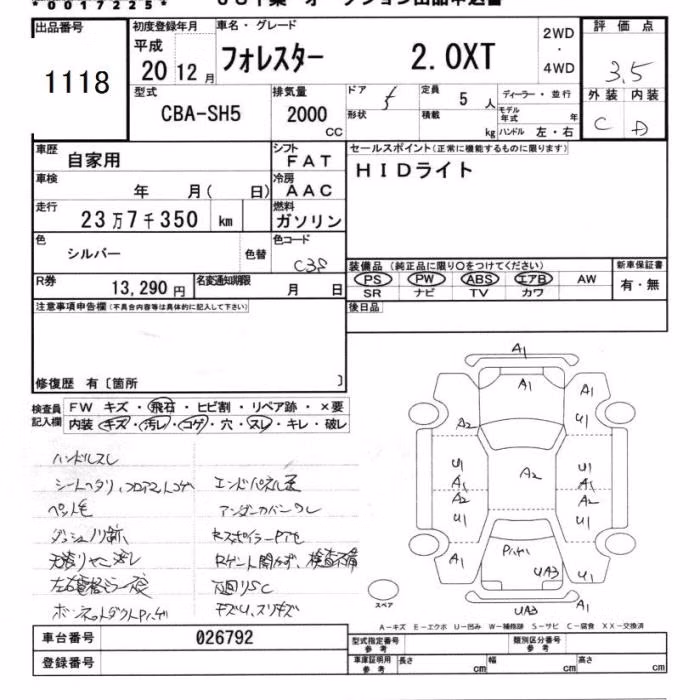 *0017225*
出品番号 1118
初度登録年月 車名・グレード 2WD・4WD 評価点
平成20 12月 フォレスター 2.0XT 3.5
型式 CBA-SH5 排気量 2000 CC
ドア 5 形状 定員 5人 積載 kg
ディーラー・並行 モデル年式 年 ハンドル 左・右
外装 内装
C D
車歴 自家用 シフト FAT
車検 年 月( 日) 冷房 AAC
走行 23万7千350 km 燃料 ガソリン
色 シルバー 色替 色コード C3S
R券 13,290円 名変通知期限 月 日
セールスポイント(正常に機能するものに限ります)
HIDライト
装備品(純正品に限り○をつけてください) 新車保証書
PS PW ABS エアB AW 有・無
SR ナビ TV カワ
後日品
注意事項申告欄(不具合内容等は具体的に記入して下さい)
修復歴 有〔箇所 〕
検査員記入欄 FW キズ・飛石・ヒビ割・リペア跡・×要
内装・キズ・汚レ・コゲ・穴・スレ・キレ・破レ
ハンドルスレ
シートヘタリ、フロアマットコゲ エンドパネル歪
ペット毛 アンダーカバーワレ
Rスポイラー
Rゲート開かず、検査不備
キズU、スリキズ
A1
A1 A1
A2 U1
U1 U1
A1 A2 A1
A2 A2
U1 U1
A1 U1
UA3
UA3 A1
スペア
A-キズ E-エクボ U-凹み W-補修跡 S-サビ C-腐食 XX-交換済
車台番号 026792
登録番号
型式指定番号 参考 類別区分番号 参考
車庫証明用 参考 長さ cm 幅 cm 高さ cm